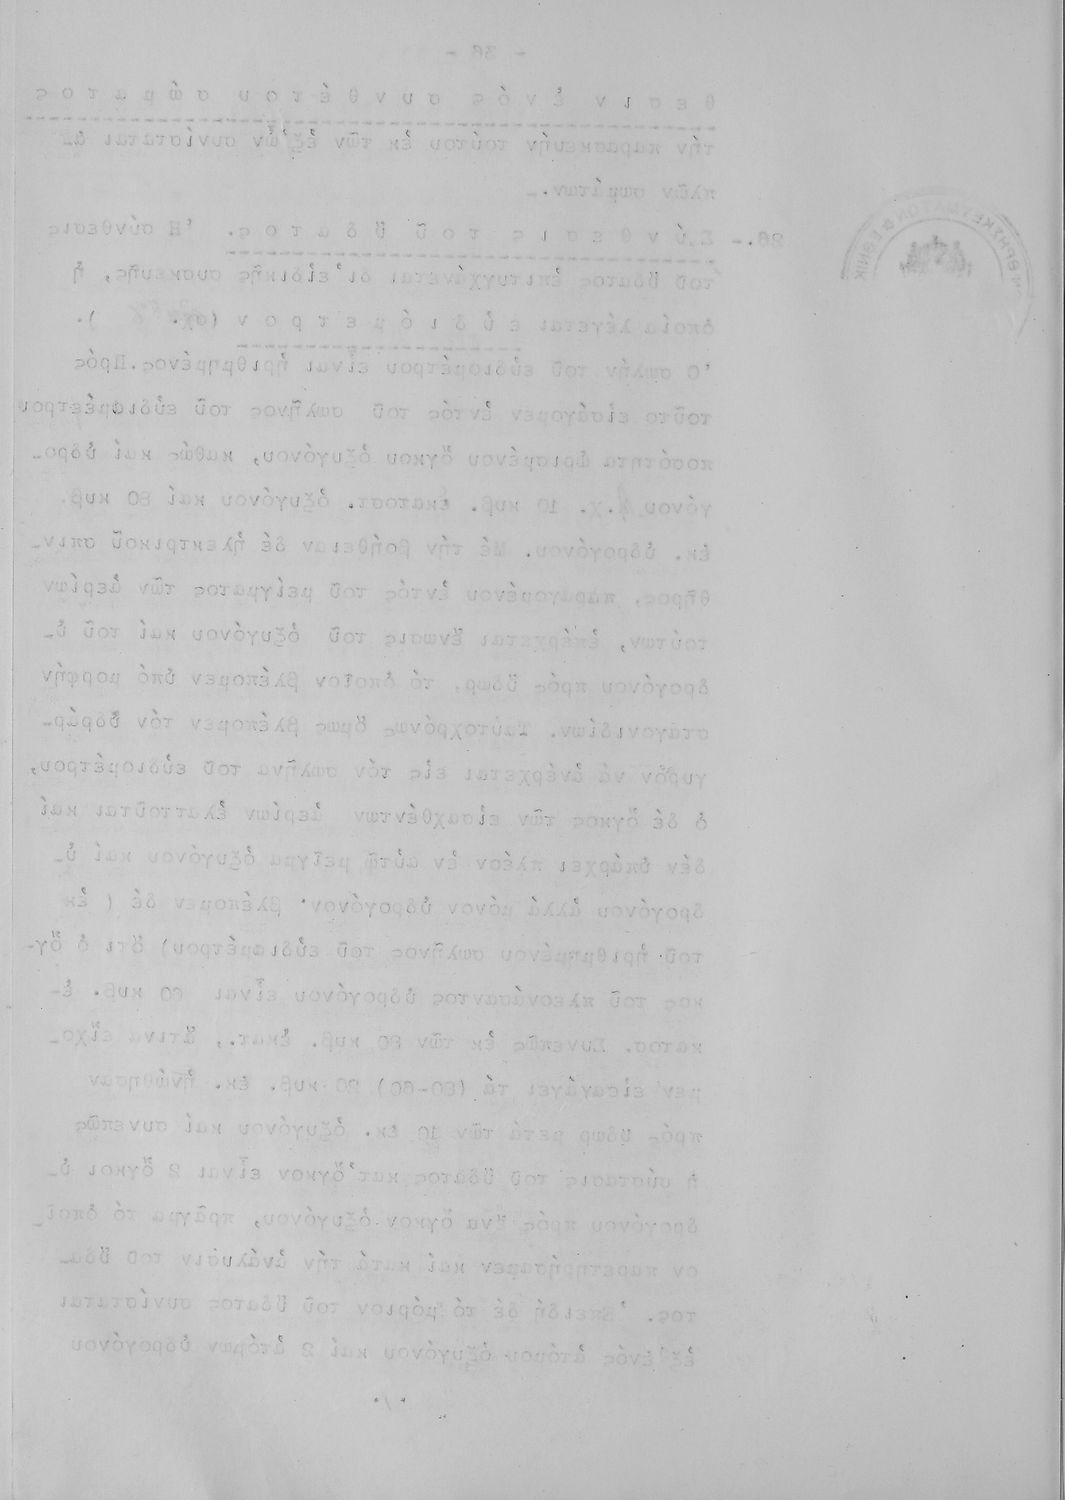 - 36 -
θεσιν ἑνός συνθέτου σώματος
τήν παρασκευήν τούτου ἐκ τῶν ἐξ ὧν συνίσταται ἁ-
πλῶν σωμάτων.-
26.- Σύνθεσις τοῦ ὕδατος. Ἡ σύνθεσις
τοῦ ὕδατος ἐπιτυγχάνεται δι' εἰδικῆς συσκευῆς, ἡ
ὁποία λέγεται εὐδιόμετρον (σχ. ).
Ὁ σωλήν τοῦ εὐδιομέτρου εἶναι ἠριθμημένος. Πρός
τοῦτο εἰσάγομεν ἐντός τοῦ σωλῆνος τοῦ εὐδιομέτρου
ποσότητα ὡρισμένου ὄγκου ὀξυγόνου, καθώς καί ὑδρο-
γόνου π.χ. 10 κυβ. ἑκατοστ. ὀξυγόνου καί 80 κυβ.
ἑκ. ὑδρογόνου. Μέ τήν βοήθειαν δέ ἠλεκτρικοῦ σπιν-
θῆρος, παραγομένου ἐντός τοῦ μείγματος τῶν ἀερίων
τούτων, ἐπέρχεται ἕνωσις τοῦ ὀξυγόνου καί τοῦ ὑ-
δρογόνου πρός ὕδωρ, τό ὁποῖον βλέπομεν ὑπό μορφήν
σταγονιδίων. Ταὐτοχρόνως ὅμως βλέπομεν τόν ὑδράρ-
γυρον νά ἀνέρχεται εἰς τόν σωλῆνα τοῦ εὐδιομέτρου,
ὁ δέ ὄγκος τῶν εἰσαχθέντων ἀερίων ἐλαττοῦται καί
δέν ὑπάρχει πλέον ἐν αὐτῷ μεῖγμα ὀξυγόνου καί ὑ-
δρογόνου ἀλλά μόνον ὑδρογόνον· βλέπομεν δέ ( ἐκ
τοῦ ἠριθμημένου σωλῆνος τοῦ εὐδιομέτρου) ὅτι ὁ ὄγ-
κος τοῦ πλεονάσαντος ὑδρογόνου εἶναι 60 κυβ. ἑ-
κατοσ. Συνεπῶς ἐκ τῶν 80 κυβ. ἑκατ., ἅτινα εἴχο-
μεν εἰσαγάγει τά (80-60) 20 κυβ. ἑκ. ἡνώθησαν
πρός ὕδωρ μετά τῶν 10 ἑκ. ὀξυγόνου καί συνεπῶς
ἡ σύστασις τοῦ ὕδατος κατ' ὄγκον εἶναι 2 ὄγκοι ὑ-
δρογόνου πρός ἕνα ὄγκον ὀξυγόνου, πρᾶγμα τό ὁποῖ-
ον παρετηρήσαμεν καί κατά τήν ἀνάλυσιν τοῦ ὕδα-
τος. Ἐπειδή δέ τό μόριον τοῦ ὕδατος συνίσταται
ἐξ ἑνός ἀτόμου ὀξυγόνου καί 2 ἀτόμων ὑδρογόνου
./.